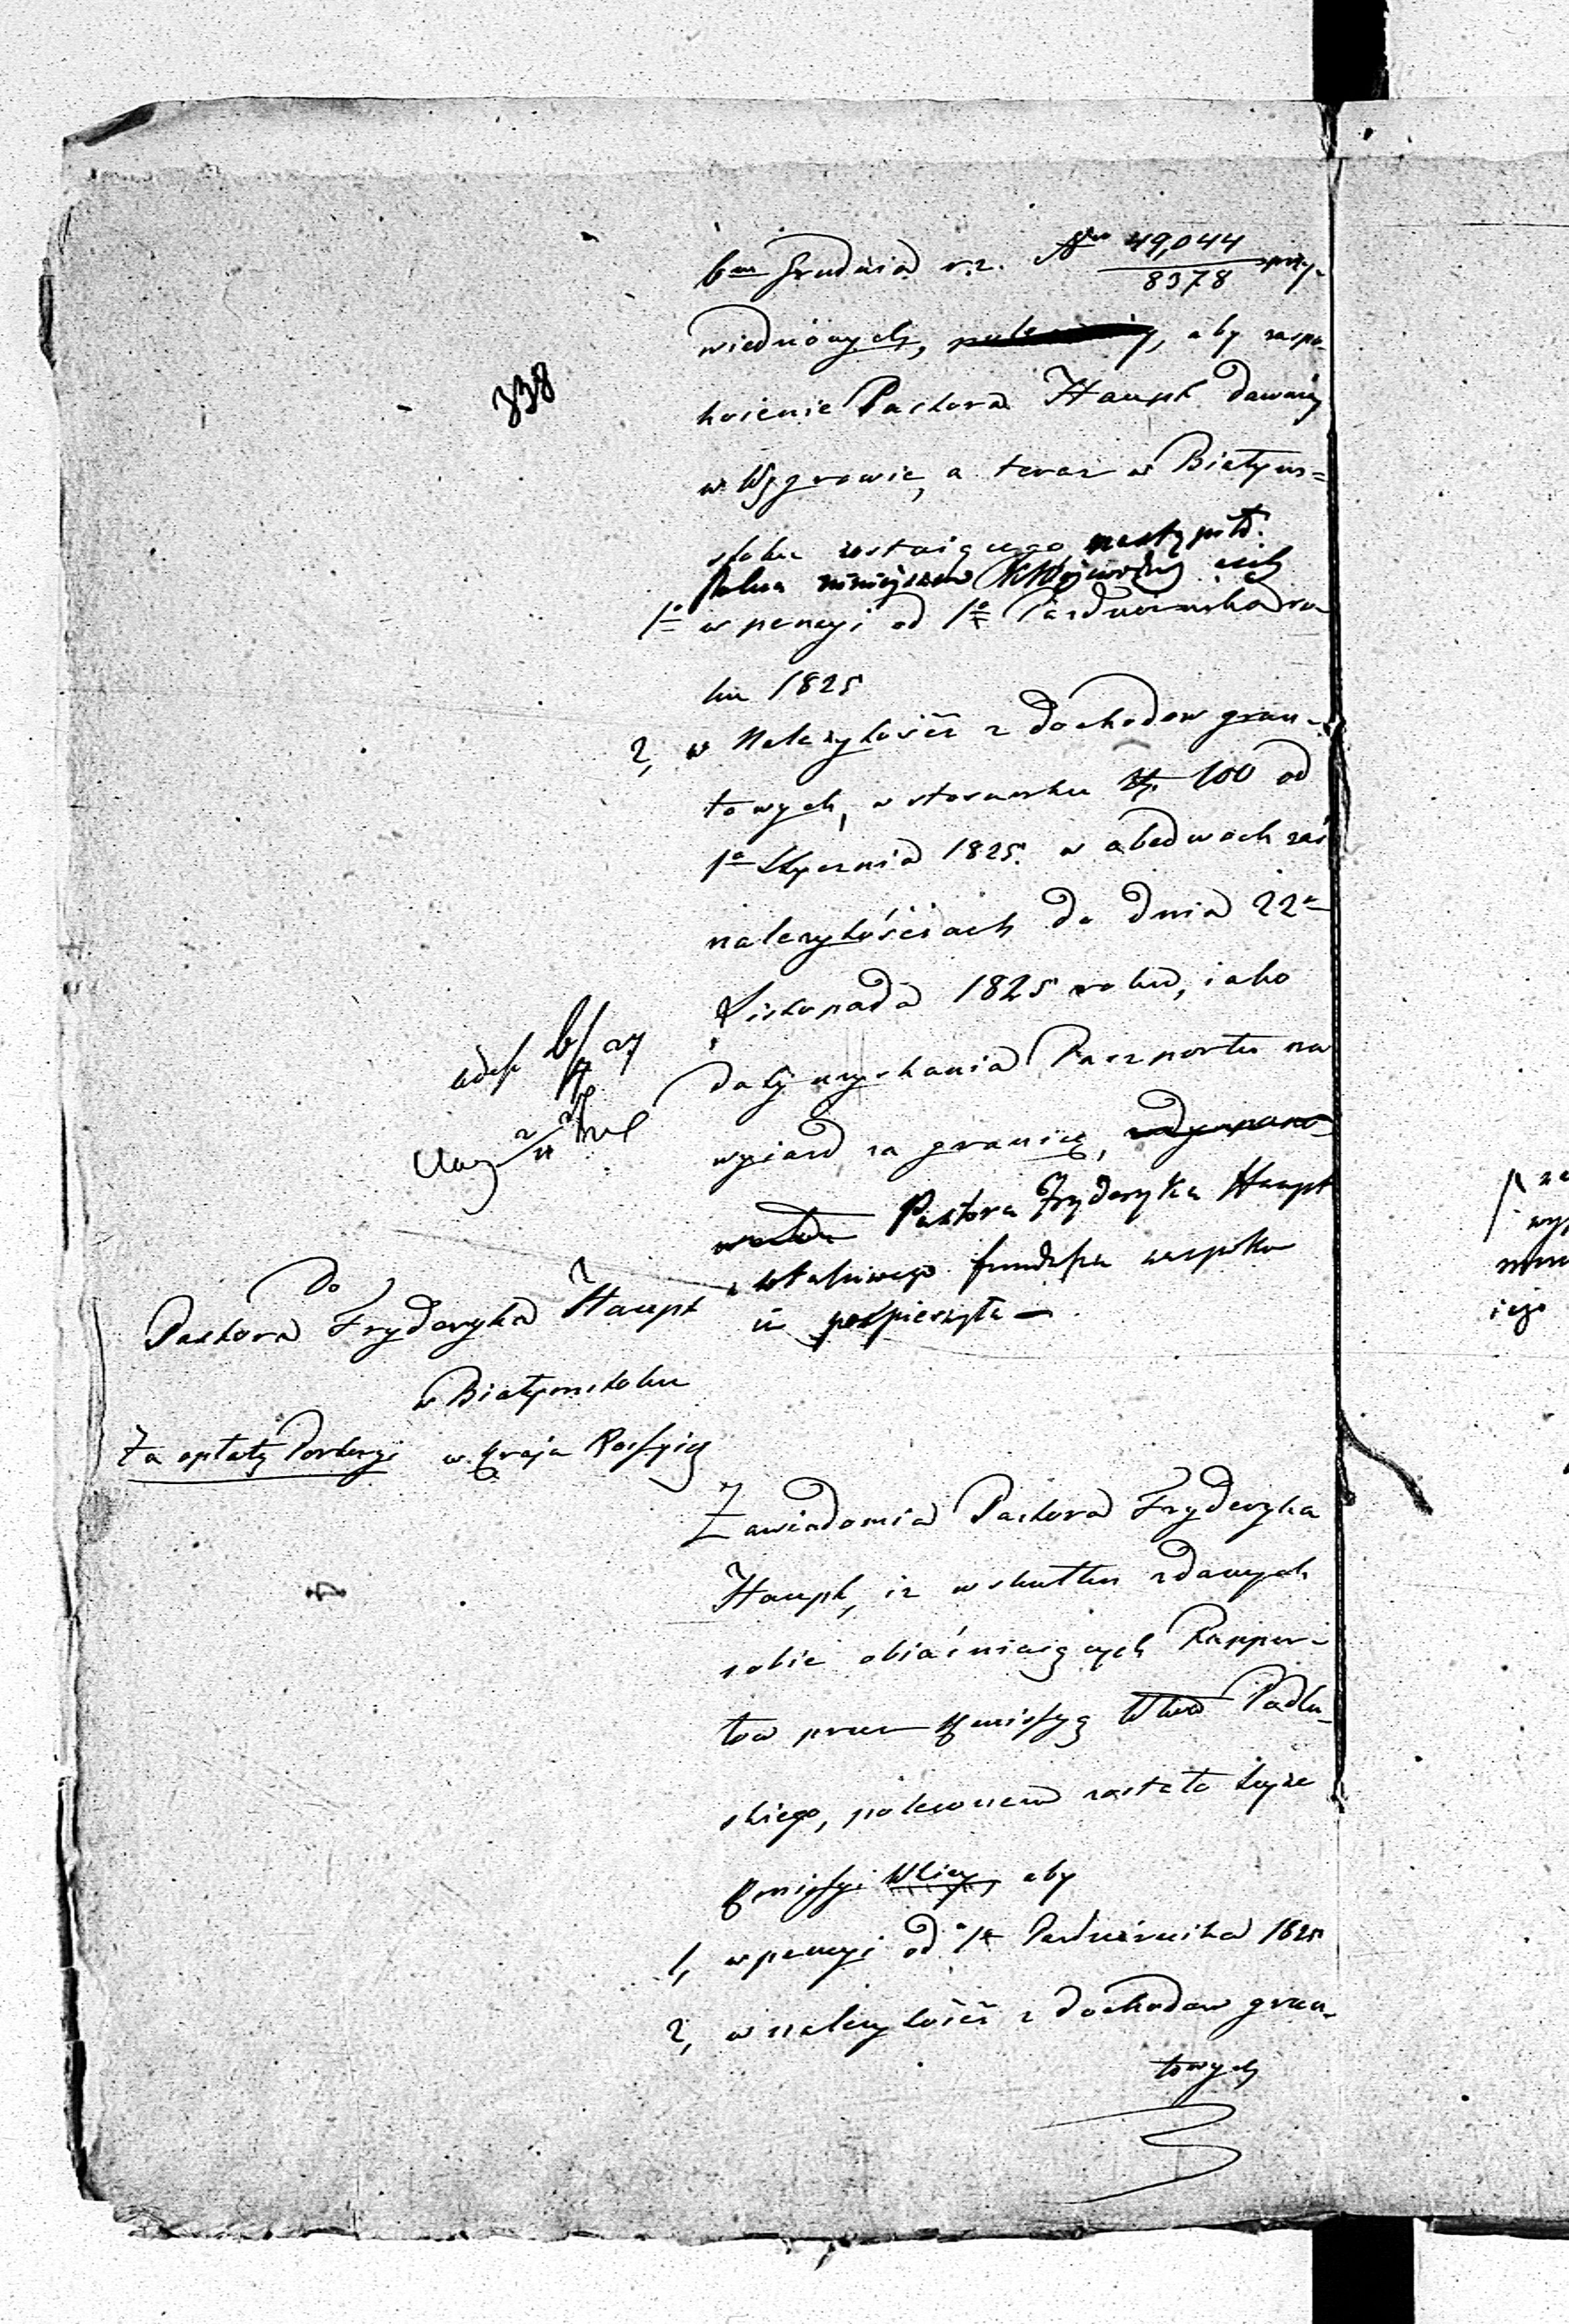 338
6go Grudnia r.z. Nro 49,044/8378 przy-
wiedzionych, aby zaspo-
koienie Pastora Haupt dawniey
w Węgrowie, a teraz w Białym=
stoku zostaiącego, nastąpiło.
1o w pensyi od 1o Października ro
ku 1825
2, w Należytość z dochodow grun-
towych, w stosunku zł. 100 od
1o Stycznia 1825. w obudwóch zaś
należytościach do dnia 22o
Listopada 1825 roku, iako
daty uzyskania Paszportu na
wyiazd za granicę,
Pastora Fryderyka Haupt
z właściwego funduszu zaspoko
ić pośpieszyła —
Do
Pastora Fryderyka Haupt
w Białymstoku
Za opłatą Portoryi w Kraju Rossyis
Zawiadomia Pastora Fryderyka
Haupt, iż w skutku zdanych
sobie obiaśniaiących Rappor-
tow przez Kmissyą Wdw Podla-
skiego, polecono zostało teyże
Kmissyi aby
1, w pensyi od 1o Października 1825
2, w należytość z dochodow grun-
towych